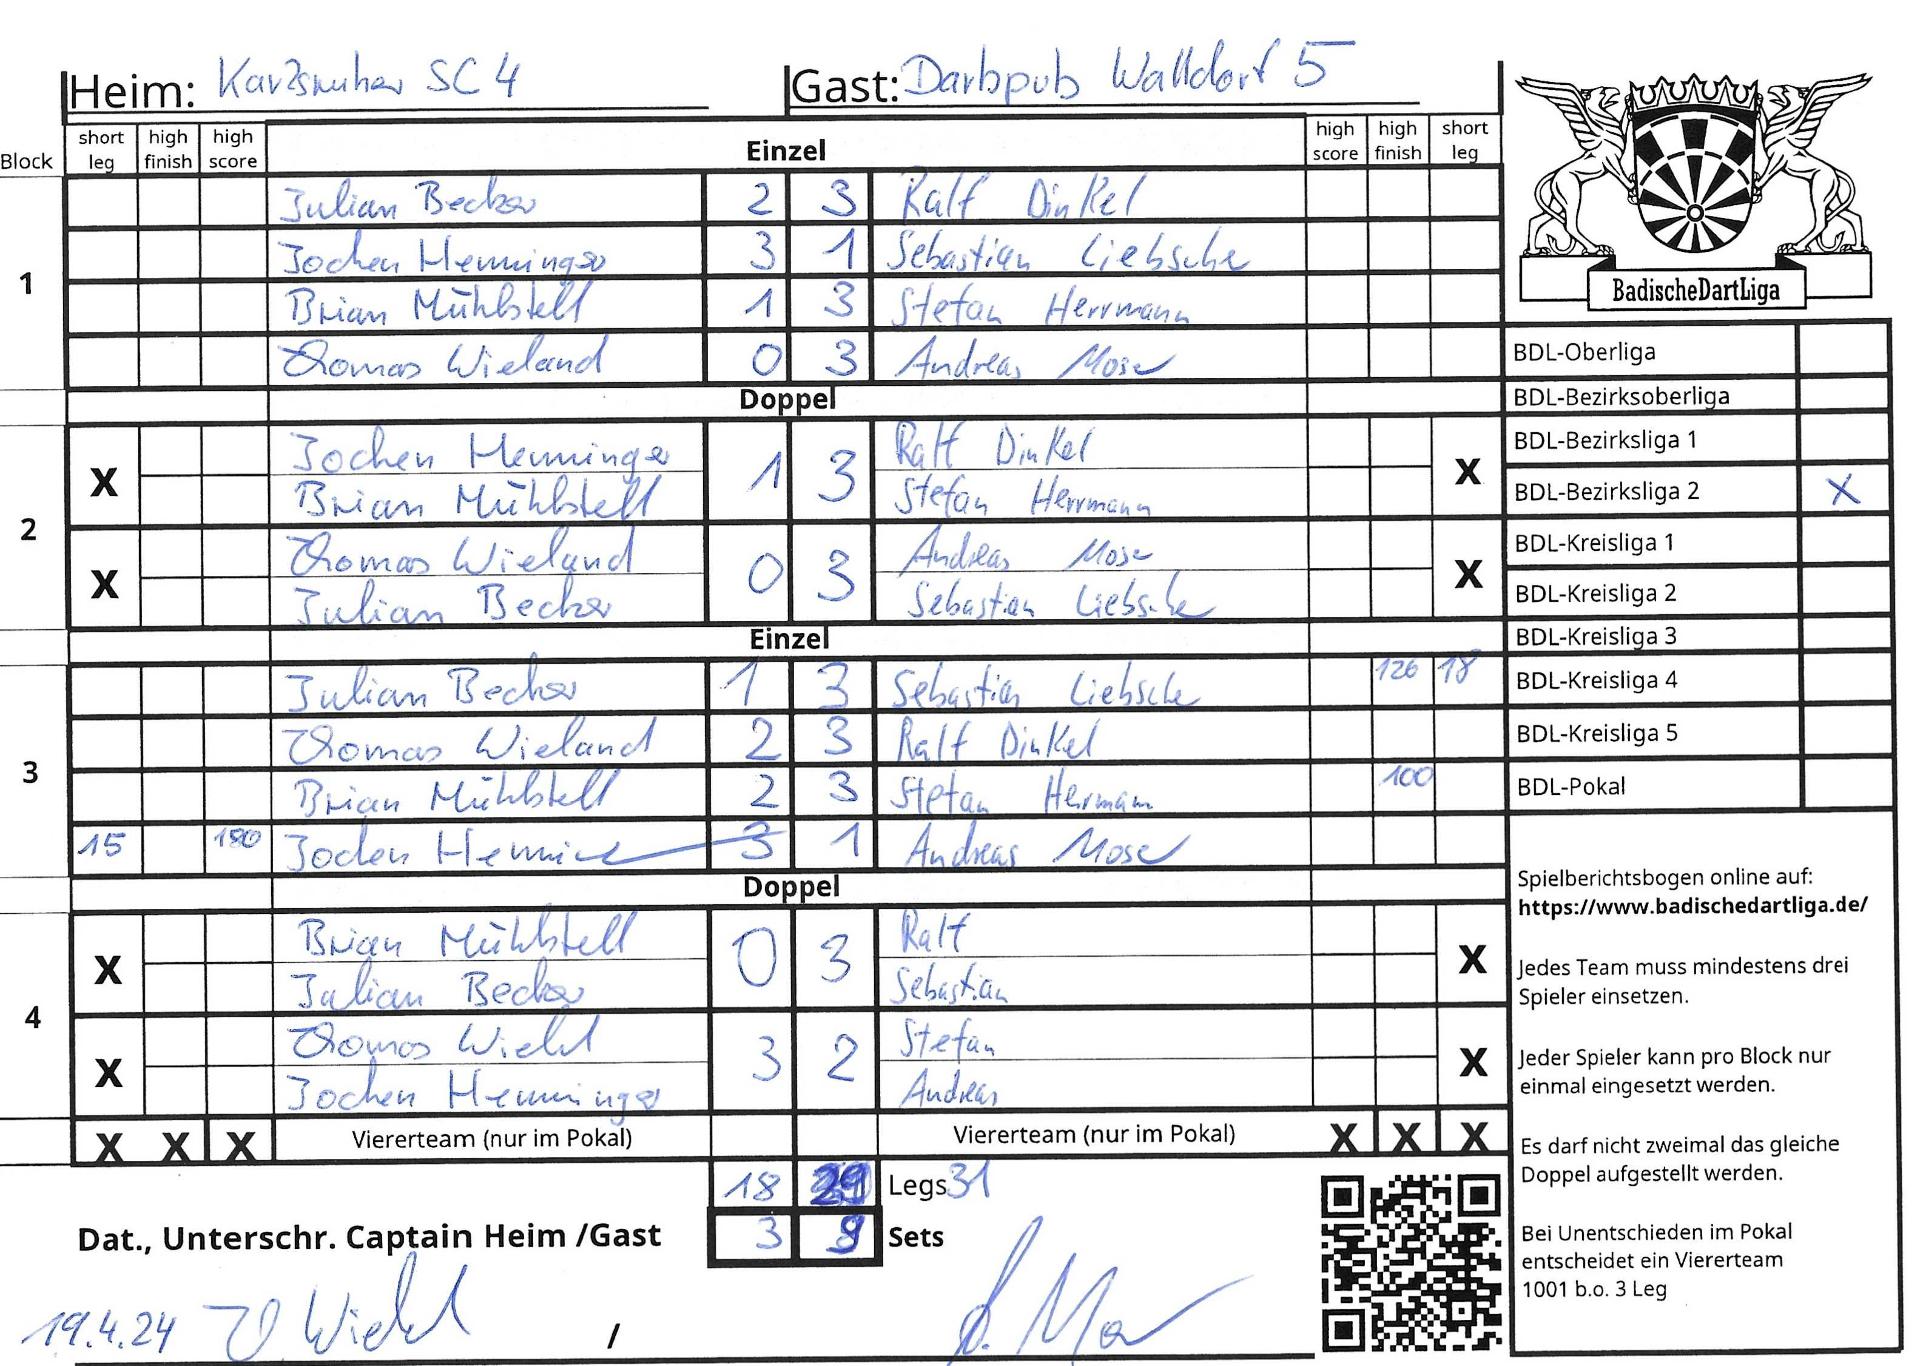 Heim: Karlsruher SC 4 Gast: Dartspub Walldorf 5
Block short leg high finish high score Einzel high score high finish short leg
1
Julian Becker 2 3 Ralf Dinkel
Jochen Henninger 3 1 Sebastian Liebsche
Brian Mühlstell 1 3 Stefan Herrmann
Thomas Wieland 0 3 Andreas Moser
Doppel
2
X Jochen Henninger 1 3 Ralf Dinkel X
Brian Mühlstell Stefan Herrmann
X Thomas Wieland 0 3 Andreas Moser X
Julian Becker Sebastian Liebsche
Einzel
3
Julian Becker 1 3 Sebastian Liebsche 126 18
Thomas Wieland 2 3 Ralf Dinkel
Brian Mühlstell 2 3 Stefan Hermann 100
15 180 Jochen 3 1 Andreas Moser
Doppel
4
X Brian Mühlstell 0 3 Ralf X
Julian Becker Sebastian
X Thomas 3 2 Stefan X
Jochen Henninger Andreas
X X X Viererteam (nur im Pokal) Viererteam (nur im Pokal) X X X
18 Legs 31
3 9 Sets
Dat., Unterschr. Captain Heim /Gast
19.4.24 /
BadischeDartLiga
BDL-Oberliga
BDL-Bezirksoberliga
BDL-Bezirksliga 1
BDL-Bezirksliga 2 X
BDL-Kreisliga 1
BDL-Kreisliga 2
BDL-Kreisliga 3
BDL-Kreisliga 4
BDL-Kreisliga 5
BDL-Pokal
Spielberichtsbogen online auf:
https://www.badischedartliga.de/
Jedes Team muss mindestens drei
Spieler einsetzen.
Jeder Spieler kann pro Block nur
einmal eingesetzt werden.
Es darf nicht zweimal das gleiche
Doppel aufgestellt werden.
Bei Unentschieden im Pokal
entscheidet ein Viererteam
1001 b.o. 3 Leg